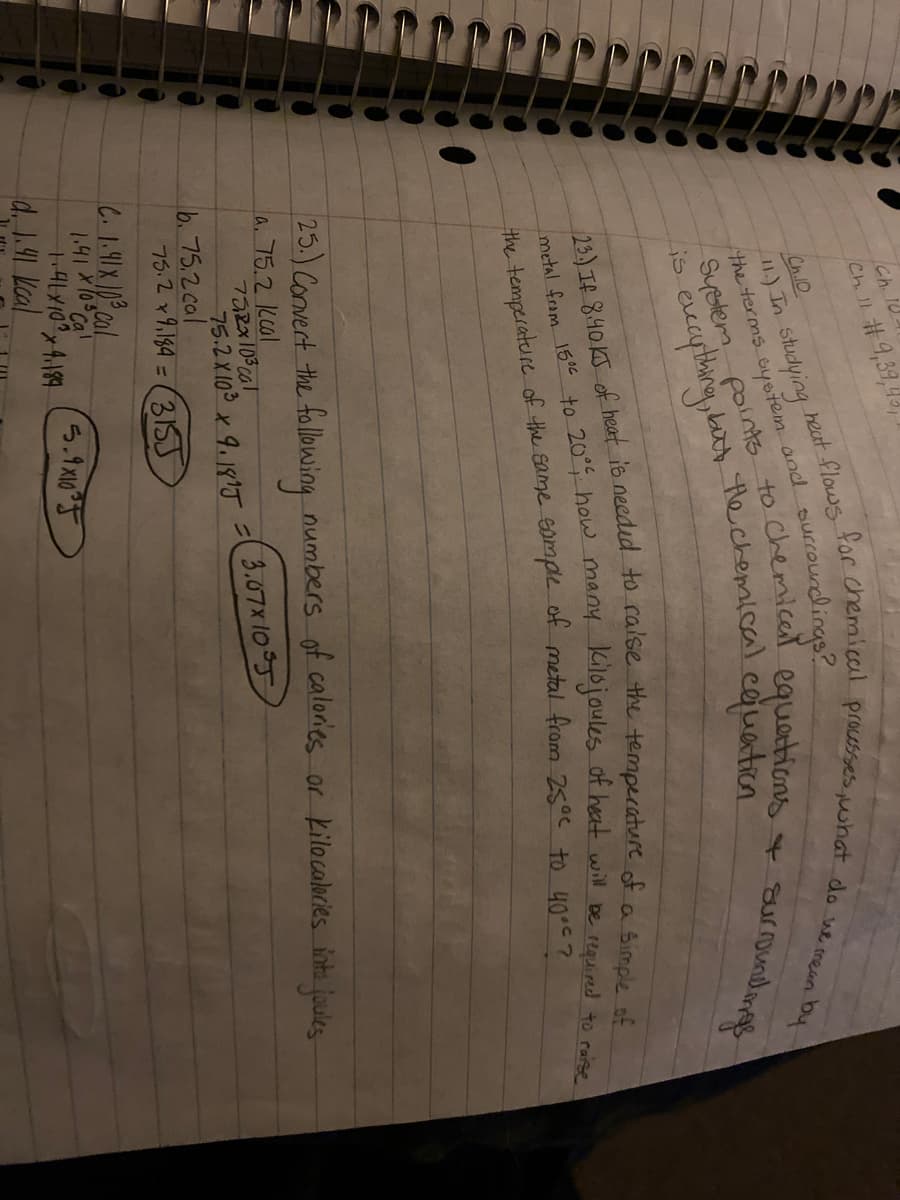 Ch. 10
Ch. 11 # 9, 39, 43,
Ch.10
11.) In studying heat flows for chemical processes, what do we mean by
the terms system and surroundings?
System points to chemical equations & surroundings
is, everything, but the chemical equation
23.) If 8.40 KJ of heat is needed to raise the temperature of a simple of
metal from 15°C to 20°C, how many kilojoules of heat will be required to raise
the temperature of the same sample of metal from 25°C to 40°C?
25.) Convert the following numbers of calories or kilocalories into joules
a. 75.2 kcal
75.2x10³cal
75.2x10³ x 4.184J = 3.07x10⁵J
b. 75.2 cal
75.2 x 4.184 = 315J
C. 1.41x10³ cal
1.41 x10³ cal
1.41 x10³ x 4.184 5.9x10³J
d. 1.41 kcal